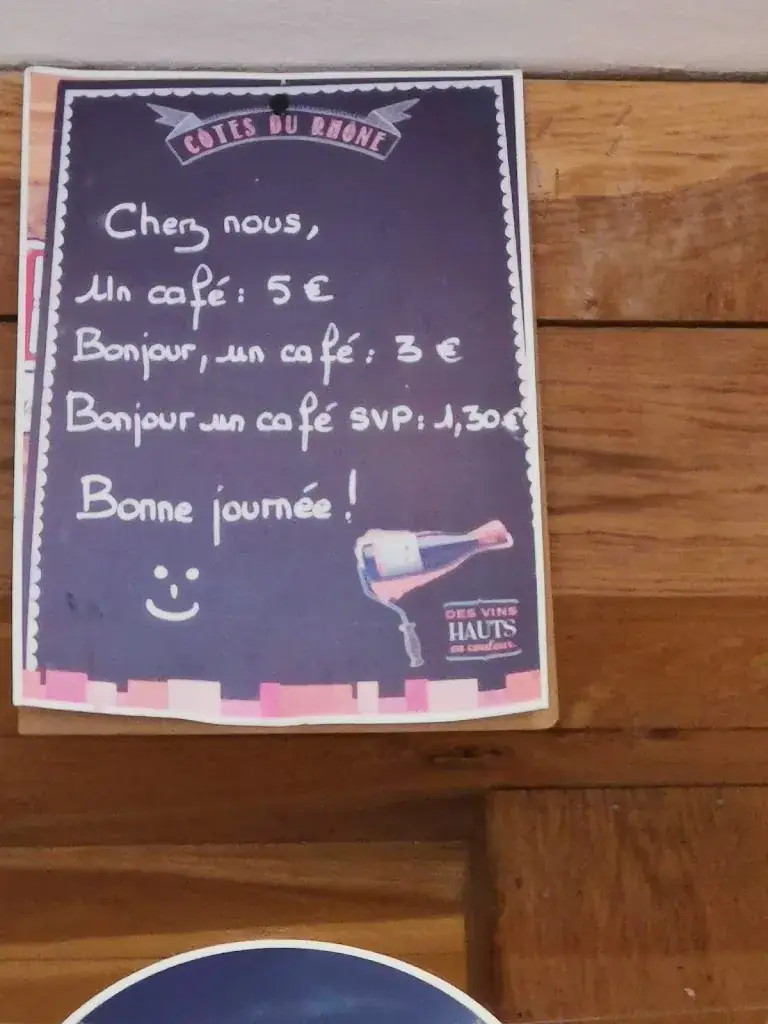 CÔTES DU RHÔNE
Chez nous,
Un café : 5 €
Bonjour, un café : 3 €
Bonjour un café SVP : 1,30€
Bonne journée !
DES VINS
HAUTS
en couleurs.